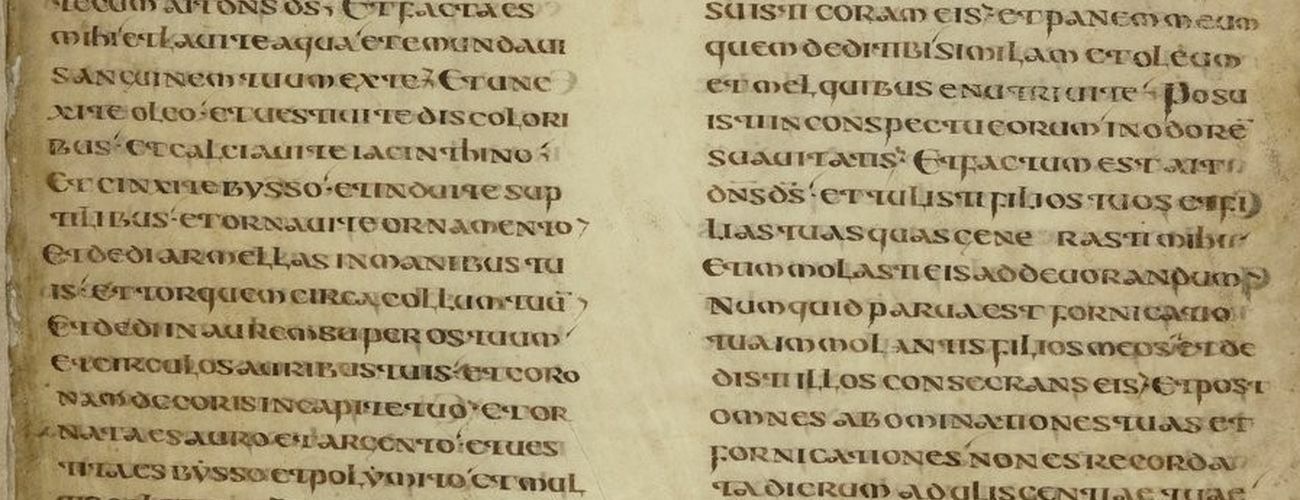 tecum ait dns ds, Et facta es
mihi et laui te aqua et emundaui
sanguinem tuum ex te Et unc
xi te oleo et uestiui te discolori
bus Et calciaui te iacinthino
Et cinxi te bysso et indui te sup
tilibus et ornaui te ornamento
Et dedi armellas in manibus tu
is et torquem circa collum tuū
Et dedi inaurem super os tuum
et circulos auribus tuis et coro
nam decoris in capite tuo Et or
nata es auro et argento et ues
tita es bysso et polymito et mul
suisti coram eis et panem meum
quem dedi tibi similam et oleum
et mel quibus enutriui te Posu
isti in conspectu eorum in odorē
suauitatis Et factum est ait
dns ds et tulisti filios tuos et fi
lias tuas quas gene rasti mihi
Et immolasti eis ad deuorandum
Numquid parua est fornicatio
tua immolantis filios meos et de
disti illos consecrans eis Et post
omnes abominationes tuas et
fornicationes non es recorda
ta dierum aduliscentiae tuae